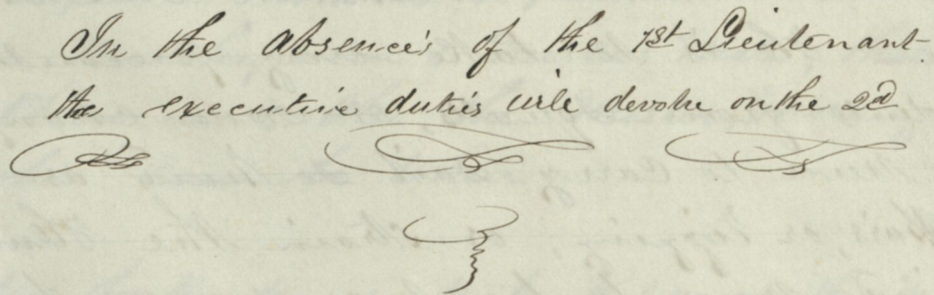 In the absence's of the 1st Lieutenant
the executive duties will devolve on the 2d